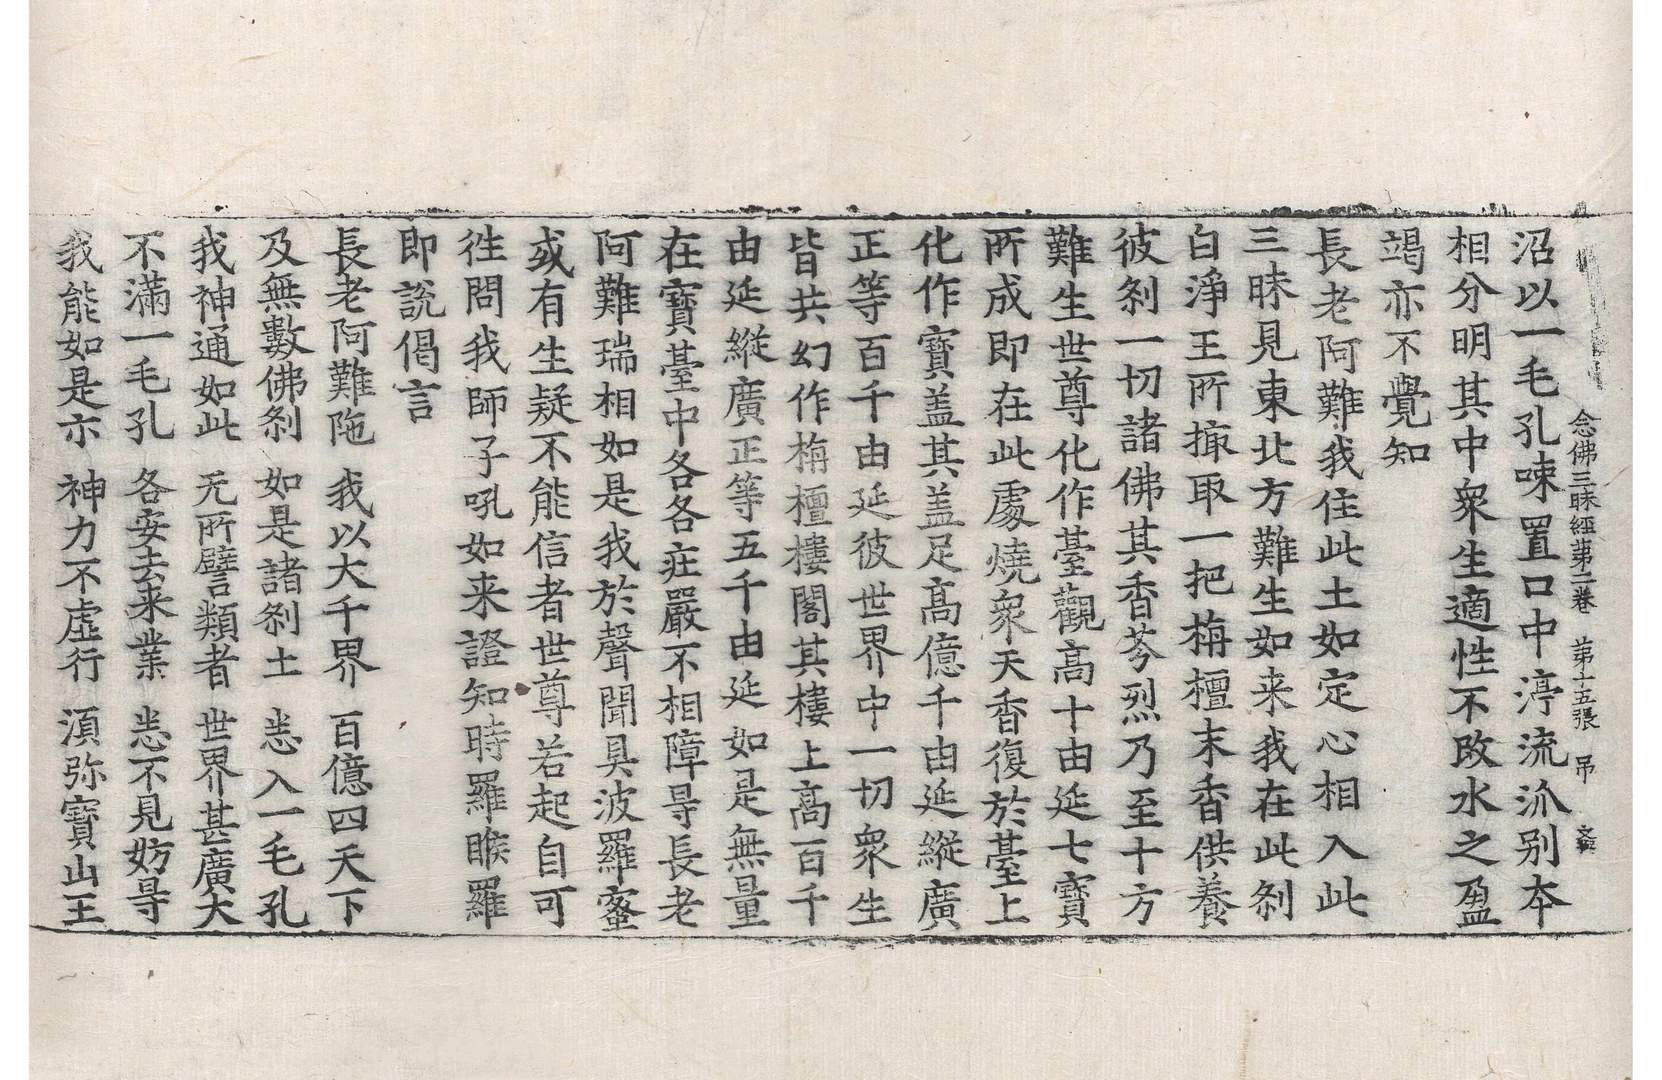 念佛三昧經第二卷 第十五張 吊
沼以一毛孔㖨置口中渟流泒別夲
相分明其中衆生適性不改水之盈
竭亦不覺知
長老阿難我住此土如定心相入此
三昧見東北方難生如来我在此刹
白淨王所掫取一把栴檀末香供養
彼刹一切諸佛其香芩烈乃至十方
難生世尊化作臺觀高十由延七寶
所成即在此處燒衆天香復於臺上
化作寶盖其盖足高億千由延縱廣
正等百千由延彼世界中一切衆生
皆共幻作栴檀樓閣其樓上高百千
由延縱廣正等五千由延如是無量
在寶臺中各各庄嚴不相障㝵長老
阿難瑞相如是我於聲聞具波羅蜜
或有生疑不能信者世尊若起自可
徃問我師子吼如来證知時羅睺羅
即說偈言
長老阿難陁 我以大千界 百億四天下
及無數佛刹 如是諸刹土 悉入一毛孔
我神通如此 无所譬類者 世界甚廣大
不滿一毛孔 各安去来業 悉不見妨㝵
我能如是亦 神力不虛行 湏弥寶山王